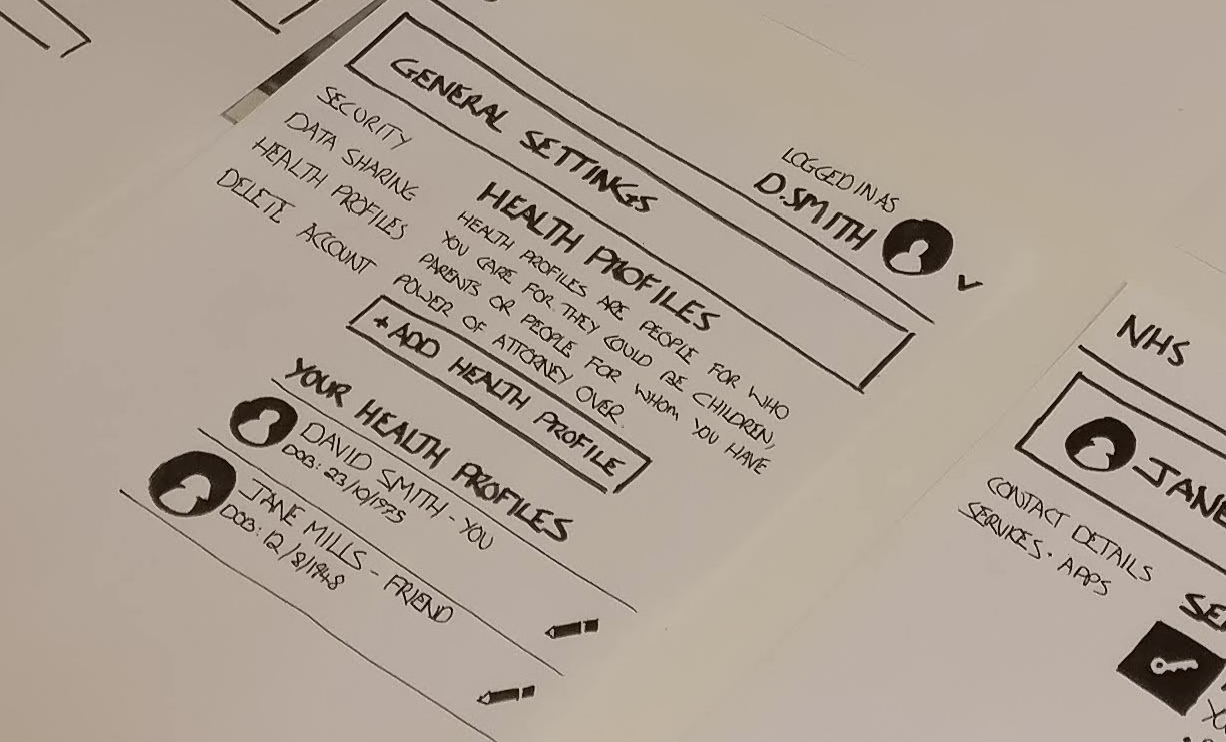 GENERAL SETTINGS
LOGGED IN AS
D.SMITH
SECURITY
DATA SHARING
HEALTH PROFILES
DELETE ACCOUNT
HEALTH PROFILES
HEALTH PROFILES ARE PEOPLE FOR WHO
YOU CARE FOR. THEY COULD BE CHILDREN,
PARENTS OR PEOPLE FOR WHOM YOU HAVE
POWER OF ATTORNEY OVER.
+ ADD HEALTH PROFILE
YOUR HEALTH PROFILES
DAVID SMITH - YOU
DOB: 23/10/1975
JANE MILLS - FRIEND
DOB: 12/8/1948
NHS
JANE
CONTACT DETAILS
SERVICES · APPS